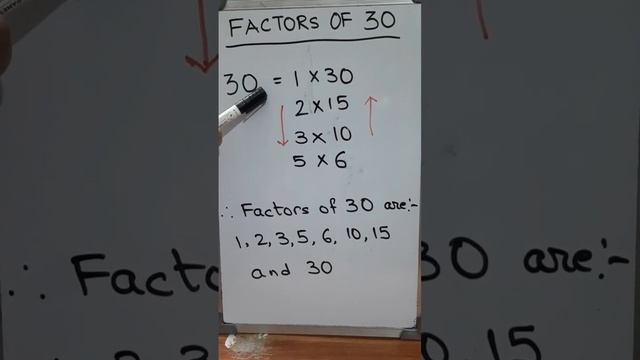 FACTORS OF 30
30 = 1 × 30
2 × 15
3 × 10
5 × 6
∴ Factors of 30 are:-
1, 2, 3, 5, 6, 10, 15
and 30